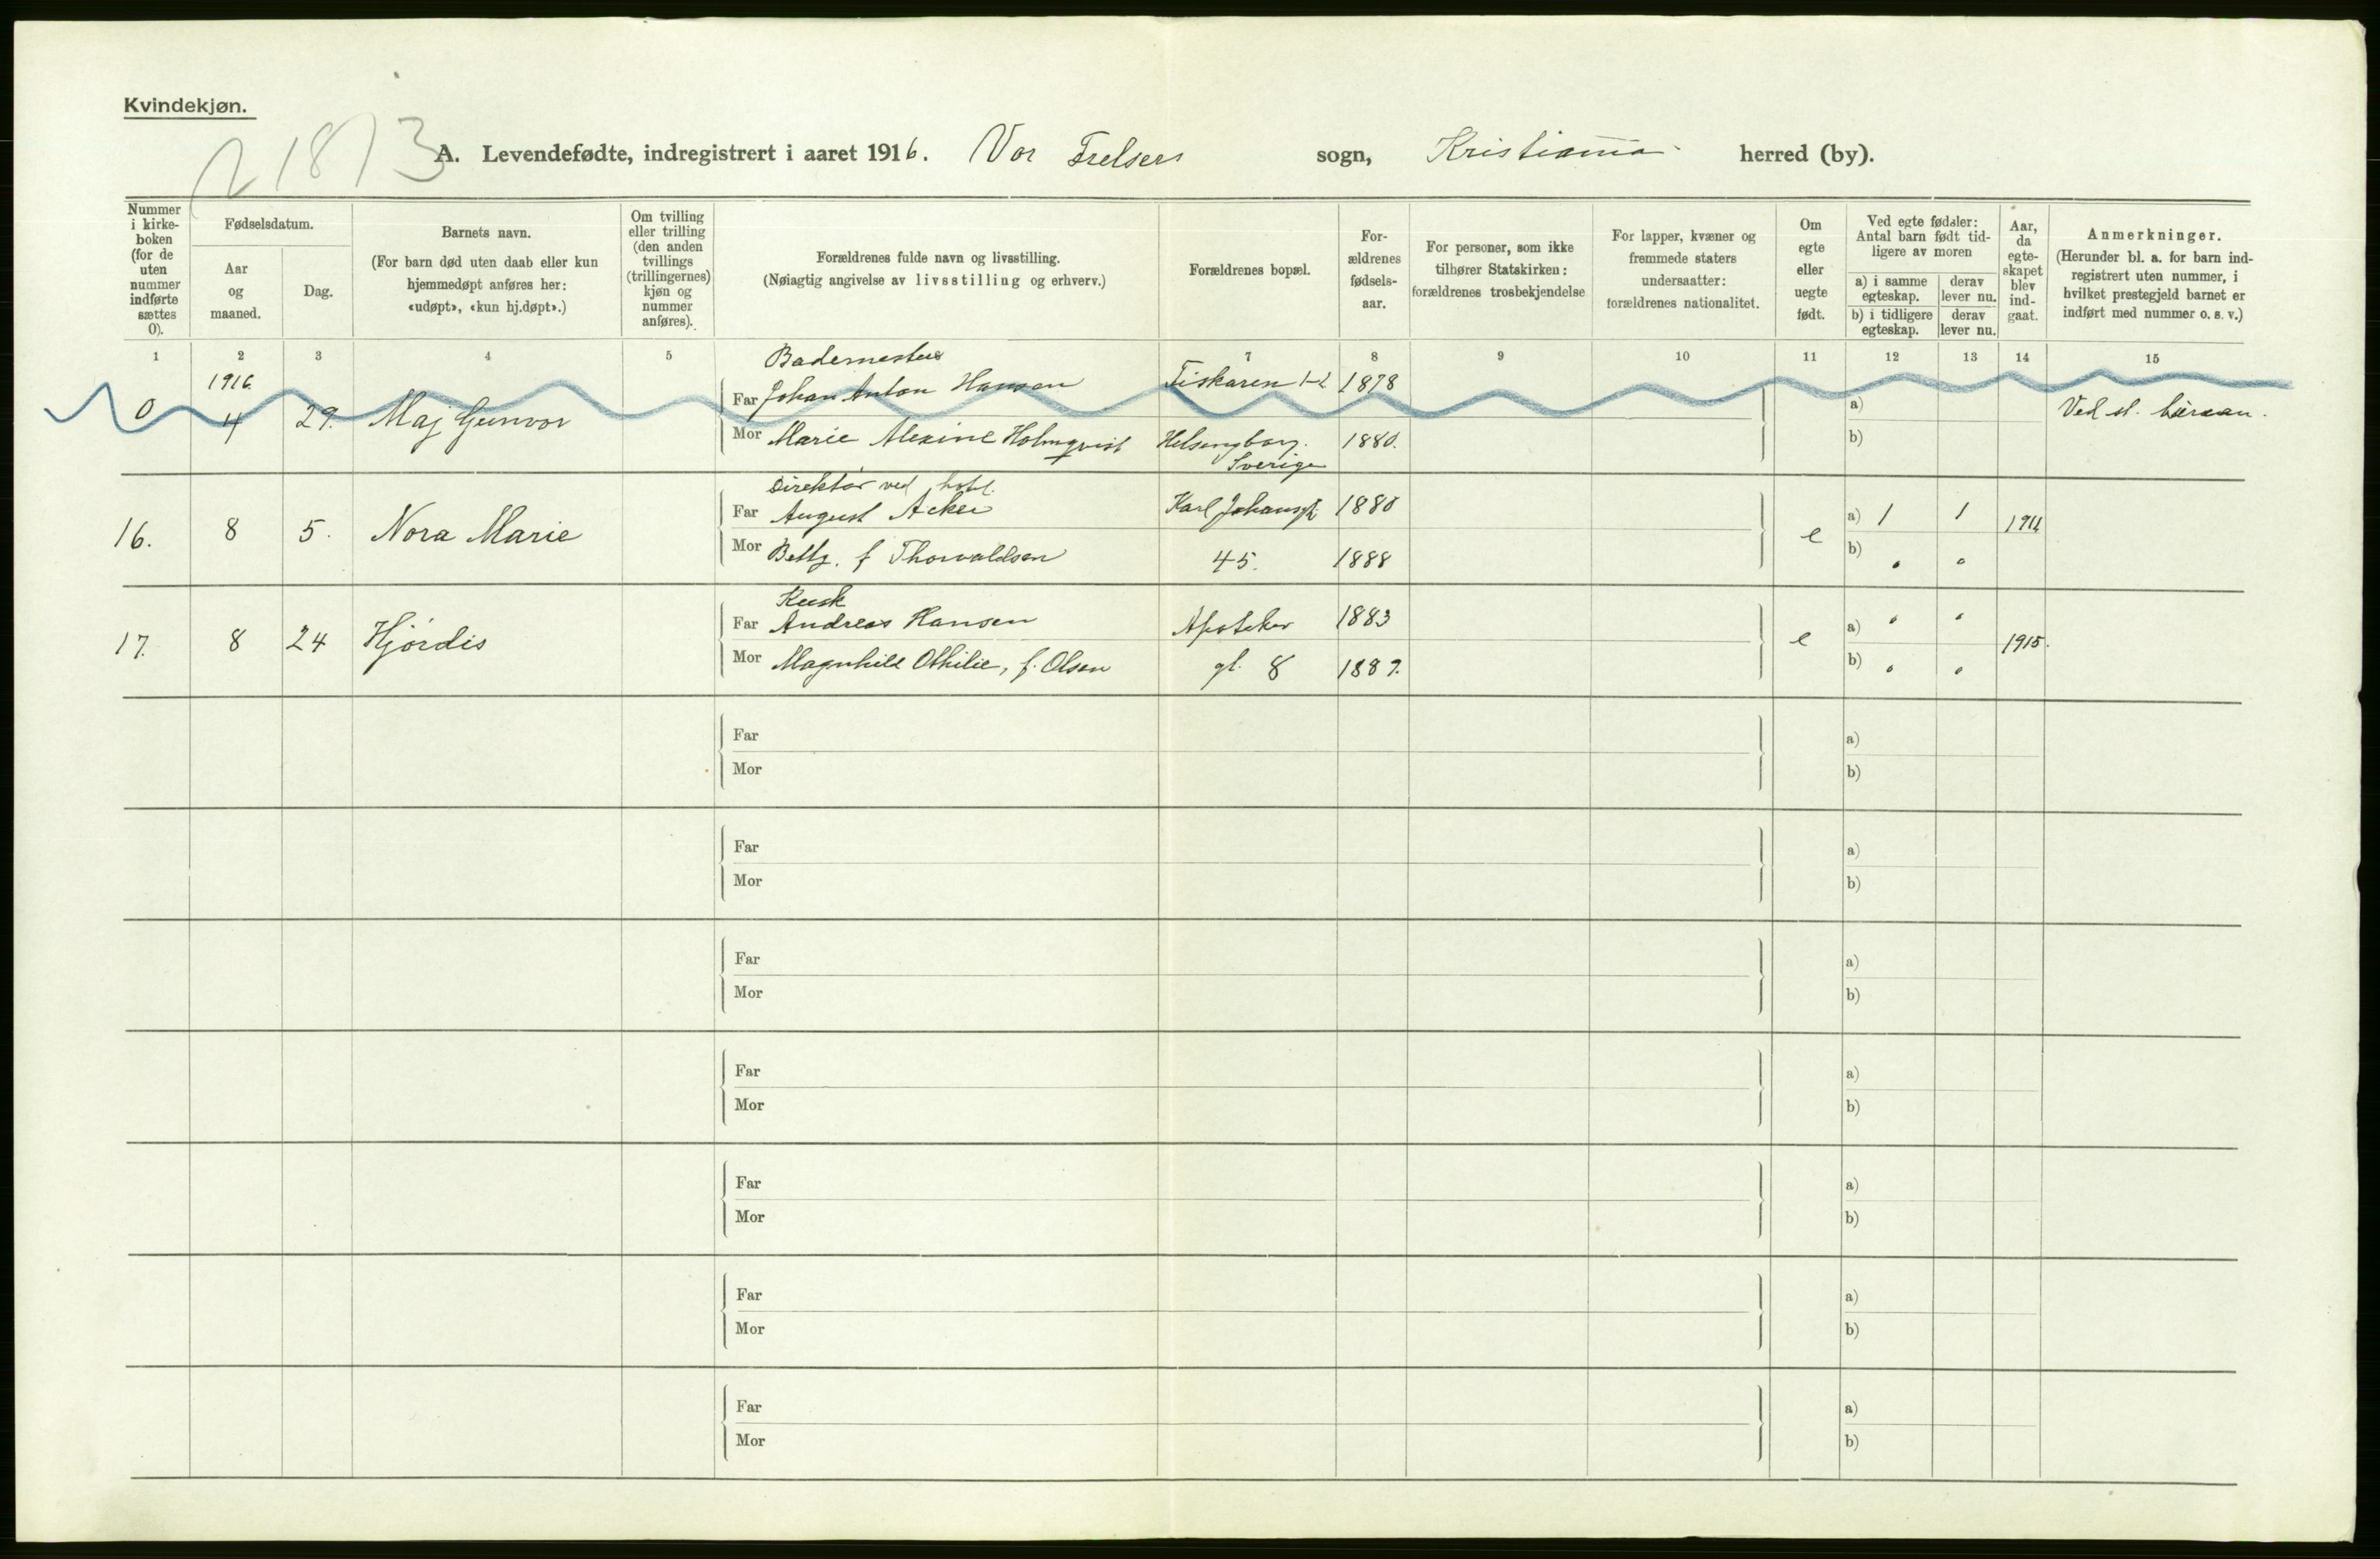 Kvindekjøn.
21873
A. Levendefødte, indregistrert i aaret 1916. Vor Frelsers sogn, Kristiania herred (by).
Nummer i kirkeboken (for de uten nummer indførte sættes 0).
Fødselsdatum.
Aar og maaned.
Dag.
Barnets navn.
(For barn død uten daab eller kun hjemmedøpt anføres her: «udøpt», «kun hj.døpt».)
Om tvilling eller trilling (den anden tvillings (trillingernes) kjøn og nummer anføres).
Forældrenes fulde navn og livsstilling.
(Nøiagtig angivelse av livsstilling og erhverv.)
Forældrenes bopæl.
Forældrenes fødselsaar.
For personer, som ikke tilhører Statskirken: forældrenes trosbekjendelse
For lapper, kvæner og fremmede staters undersaatter: forældrenes nationalitet.
Om egte eller uegte født.
Ved egte fødsler: Antal barn født tidligere av moren
a) i samme egteskap.
derav lever nu.
b) i tidligere egteskap.
derav lever nu.
Aar, da egteskapet blev indgaat.
Anmerkninger.
(Herunder bl. a. for barn indregistrert uten nummer, i hvilket prestegjeld barnet er indført med nummer o. s. v.)
1 2 3 4 5 7 8 9 10 11 12 13 14 15
1916
Bademester
0 4 29. Maj Gunvor Far Johan Anton Hansen Fiskaren 1878 a) Ved st. büraau.
Mor Marie Alexine Holmqvist Helsingborg. 1880. b)
Sverige
Direktør ved hotel.
16. 8 5. Nora Marie Far August Acker Karl Johansgt. 1880 e a) 1 1 1911
Mor Betty. f Thorvaldsen 45. 1888 b) " "
Kusk
17. 8 24 Hjørdis Far Andreas Hansen Apoteker 1883 e a) " " 1915.
Mor Magnhild Othilie, f. Olsen gt. 8 1889. b) " "
Far a)
Mor b)
Far a)
Mor b)
Far a)
Mor b)
Far a)
Mor b)
Far a)
Mor b)
Far a)
Mor b)
Far a)
Mor b)